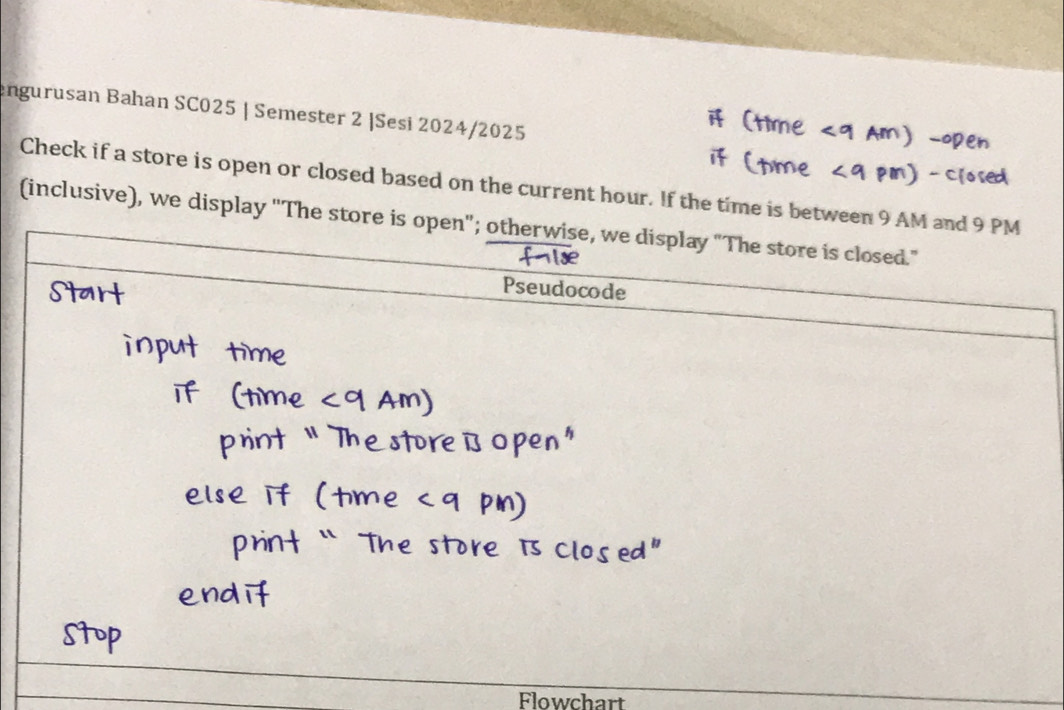 engurusan Bahan SC025 | Semester 2 |Sesi 2024/2025
if (time <9 AM) -open
if (time <9 pm) - closed
Check if a store is open or closed based on the current hour. If the time is between 9 AM and 9 PM
(inclusive), we display "The store is open"; otherwise, we display "The store is closed."
false
Pseudocode
Start
input time
if (time <9 AM)
print "The store is open"
else if (time <9 pm)
print "The store is closed"
endif
Stop
Flowchart